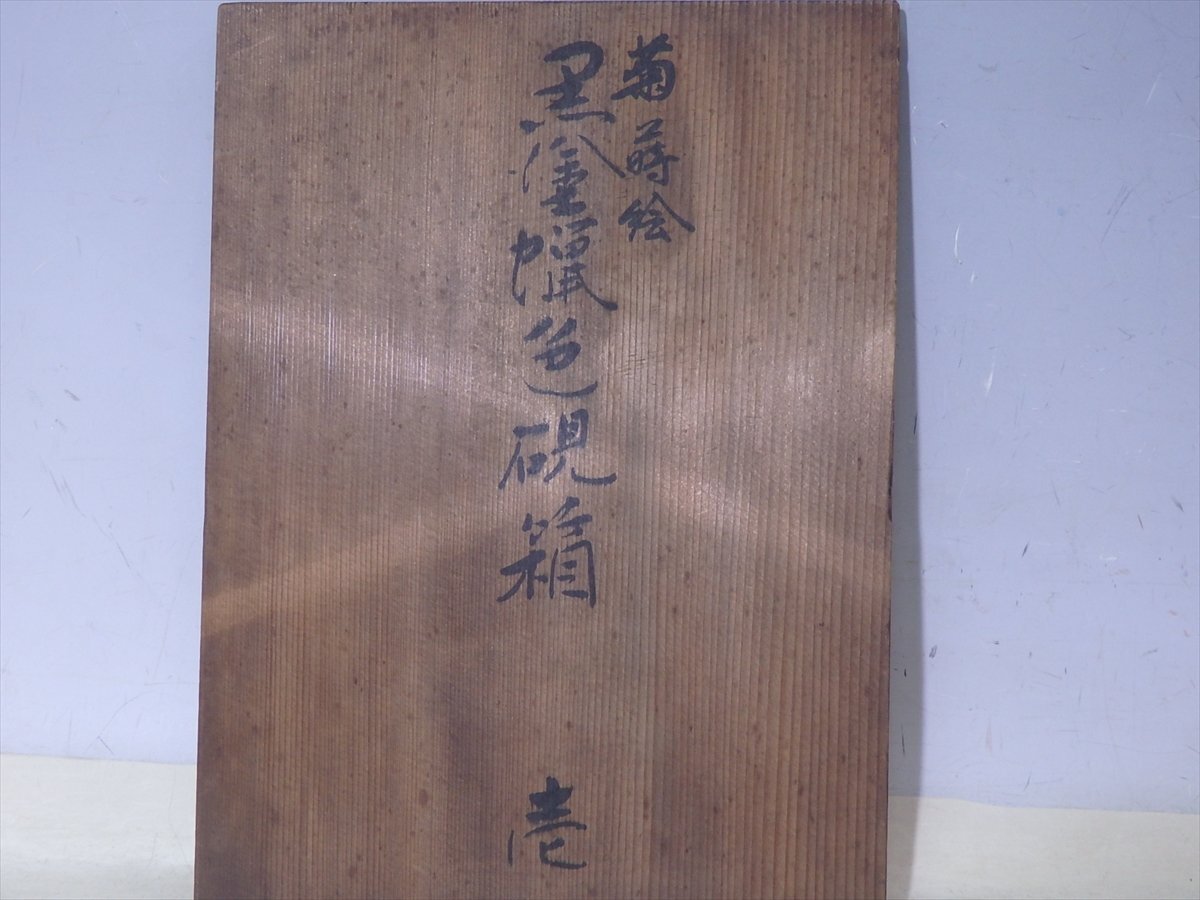 菊蒔絵
黒塗蝋色硯箱
壱